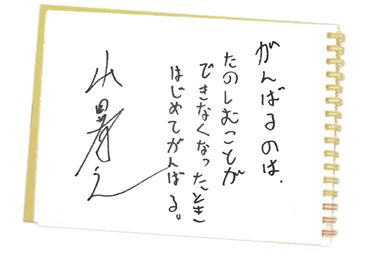 がんばるのは、
たのしむことが
できなくなったとき
はじめてがんばる。